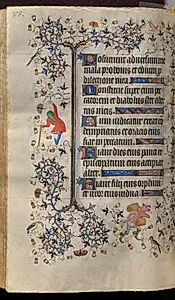 Posuerunt adversum me
mala pro bonis et odium p
dilectione mea
Constitue super eum pec
catorem et diabolus stet a dex
tris eius
Cum iudicatur exeat co
dempnatus et oracio eius
fiat in peccatum
Fiant dies eius pauci et
episcopatum eius accipiat
alter
Fiant filii eius orphani
et uxor eius vidua